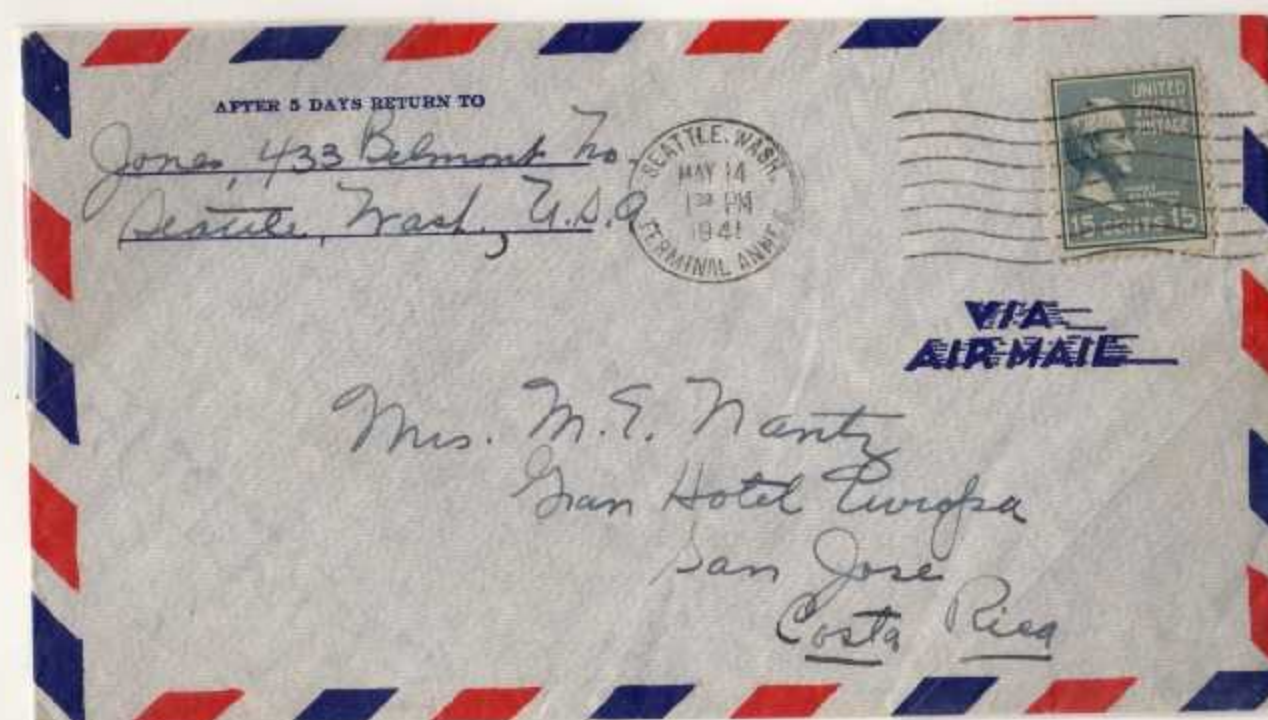 AFTER 5 DAYS RETURN TO
Jones, 433 Belmont No.
Seattle, Wash., U.S.A
SEATTLE, WASH.
MAY 14
1 30 PM
1941
TERMINAL ANNEX
UNITED
STATES
POSTAGE
15 CENTS 15
VIA
AIR MAIL
Mrs. M.E. Nantz
Gran Hotel Europa
San Jose
Costa Rica